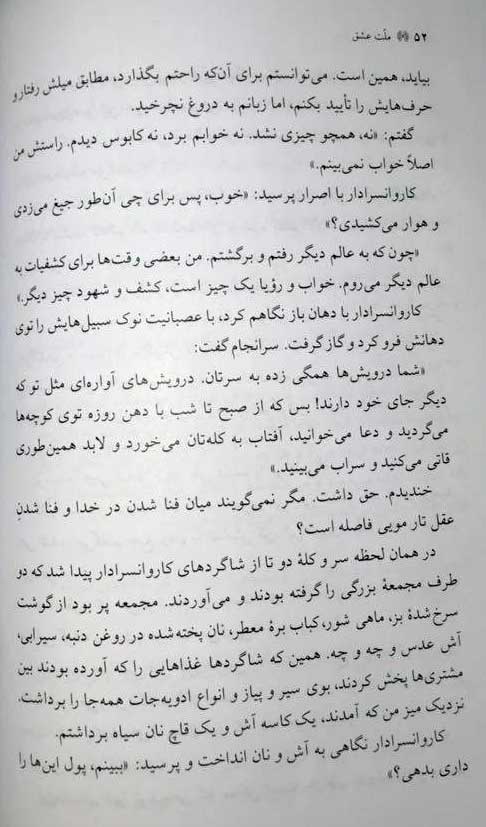 ۵۲ ملّت عشق
بیاید، همین است. می‌توانستم برای آن‌که راحتم بگذارد، مطابق میلش رفتار و
حرف‌هایش را تأیید بکنم، اما زبانم به دروغ نچرخید.
گفتم: «نه، همچو چیزی نشد. نه خوابم برد، نه کابوس دیدم. راستش من
اصلاً خواب نمی‌بینم.»
کاروانسرادار با اصرار پرسید: «خوب، پس برای چی آن‌طور جیغ می‌زدی
و هوار می‌کشیدی؟»
«چون که به عالم دیگر رفتم و برگشتم. من بعضی وقت‌ها برای کشفیات به
عالم دیگر می‌روم. خواب و رؤیا یک چیز است، کشف و شهود چیز دیگر.»
کاروانسرادار با دهان باز نگاهم کرد، با عصبانیت نوک سبیل‌هایش را توی
دهانش فرو کرد و گاز گرفت. سرانجام گفت:
«شما درویش‌ها همگی زده به سرتان. درویش‌های آواره‌ای مثل تو که
دیگر جای خود دارند! بس که از صبح تا شب با دهن روزه توی کوچه‌ها
می‌گردید و دعا می‌خوانید، آفتاب به کله‌تان می‌خورد و لابد همین‌طوری
قاتی می‌کنید و سراب می‌بینید.»
خندیدم. حق داشت. مگر نمی‌گویند میان فنا شدن در خدا و فنا شدنِ
عقل تار مویی فاصله است؟
در همان لحظه سر و کلهٔ دو تا از شاگردهای کاروانسرادار پیدا شد که دو
طرف مجمعهٔ بزرگی را گرفته بودند و می‌آوردند. مجمعه پر بود از گوشت
سرخ‌شدهٔ بز، ماهی شور، کباب برهٔ معطر، نان پخته‌شده در روغن دنبه، سیرابی،
آش عدس و چه و چه. همین که شاگردها غذاهایی را که آورده بودند بین
مشتری‌ها پخش کردند، بوی سیر و پیاز و انواع ادویه‌جات همه‌جا را برداشت.
نزدیک میز من که آمدند، یک کاسه آش و یک قاچ نان سیاه برداشتم.
کاروانسرادار نگاهی به آش و نان انداخت و پرسید: «ببینم، پول این‌ها را
داری بدهی؟»